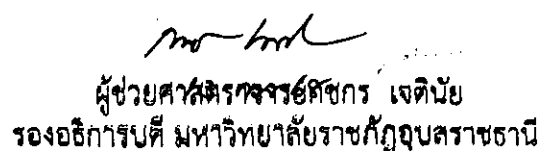 ผู้ช่วยศาสตราจารย์ เจตินัย
รองอธิการบดี มหาวิทยาลัยราชภัฏอุบลราชธานี